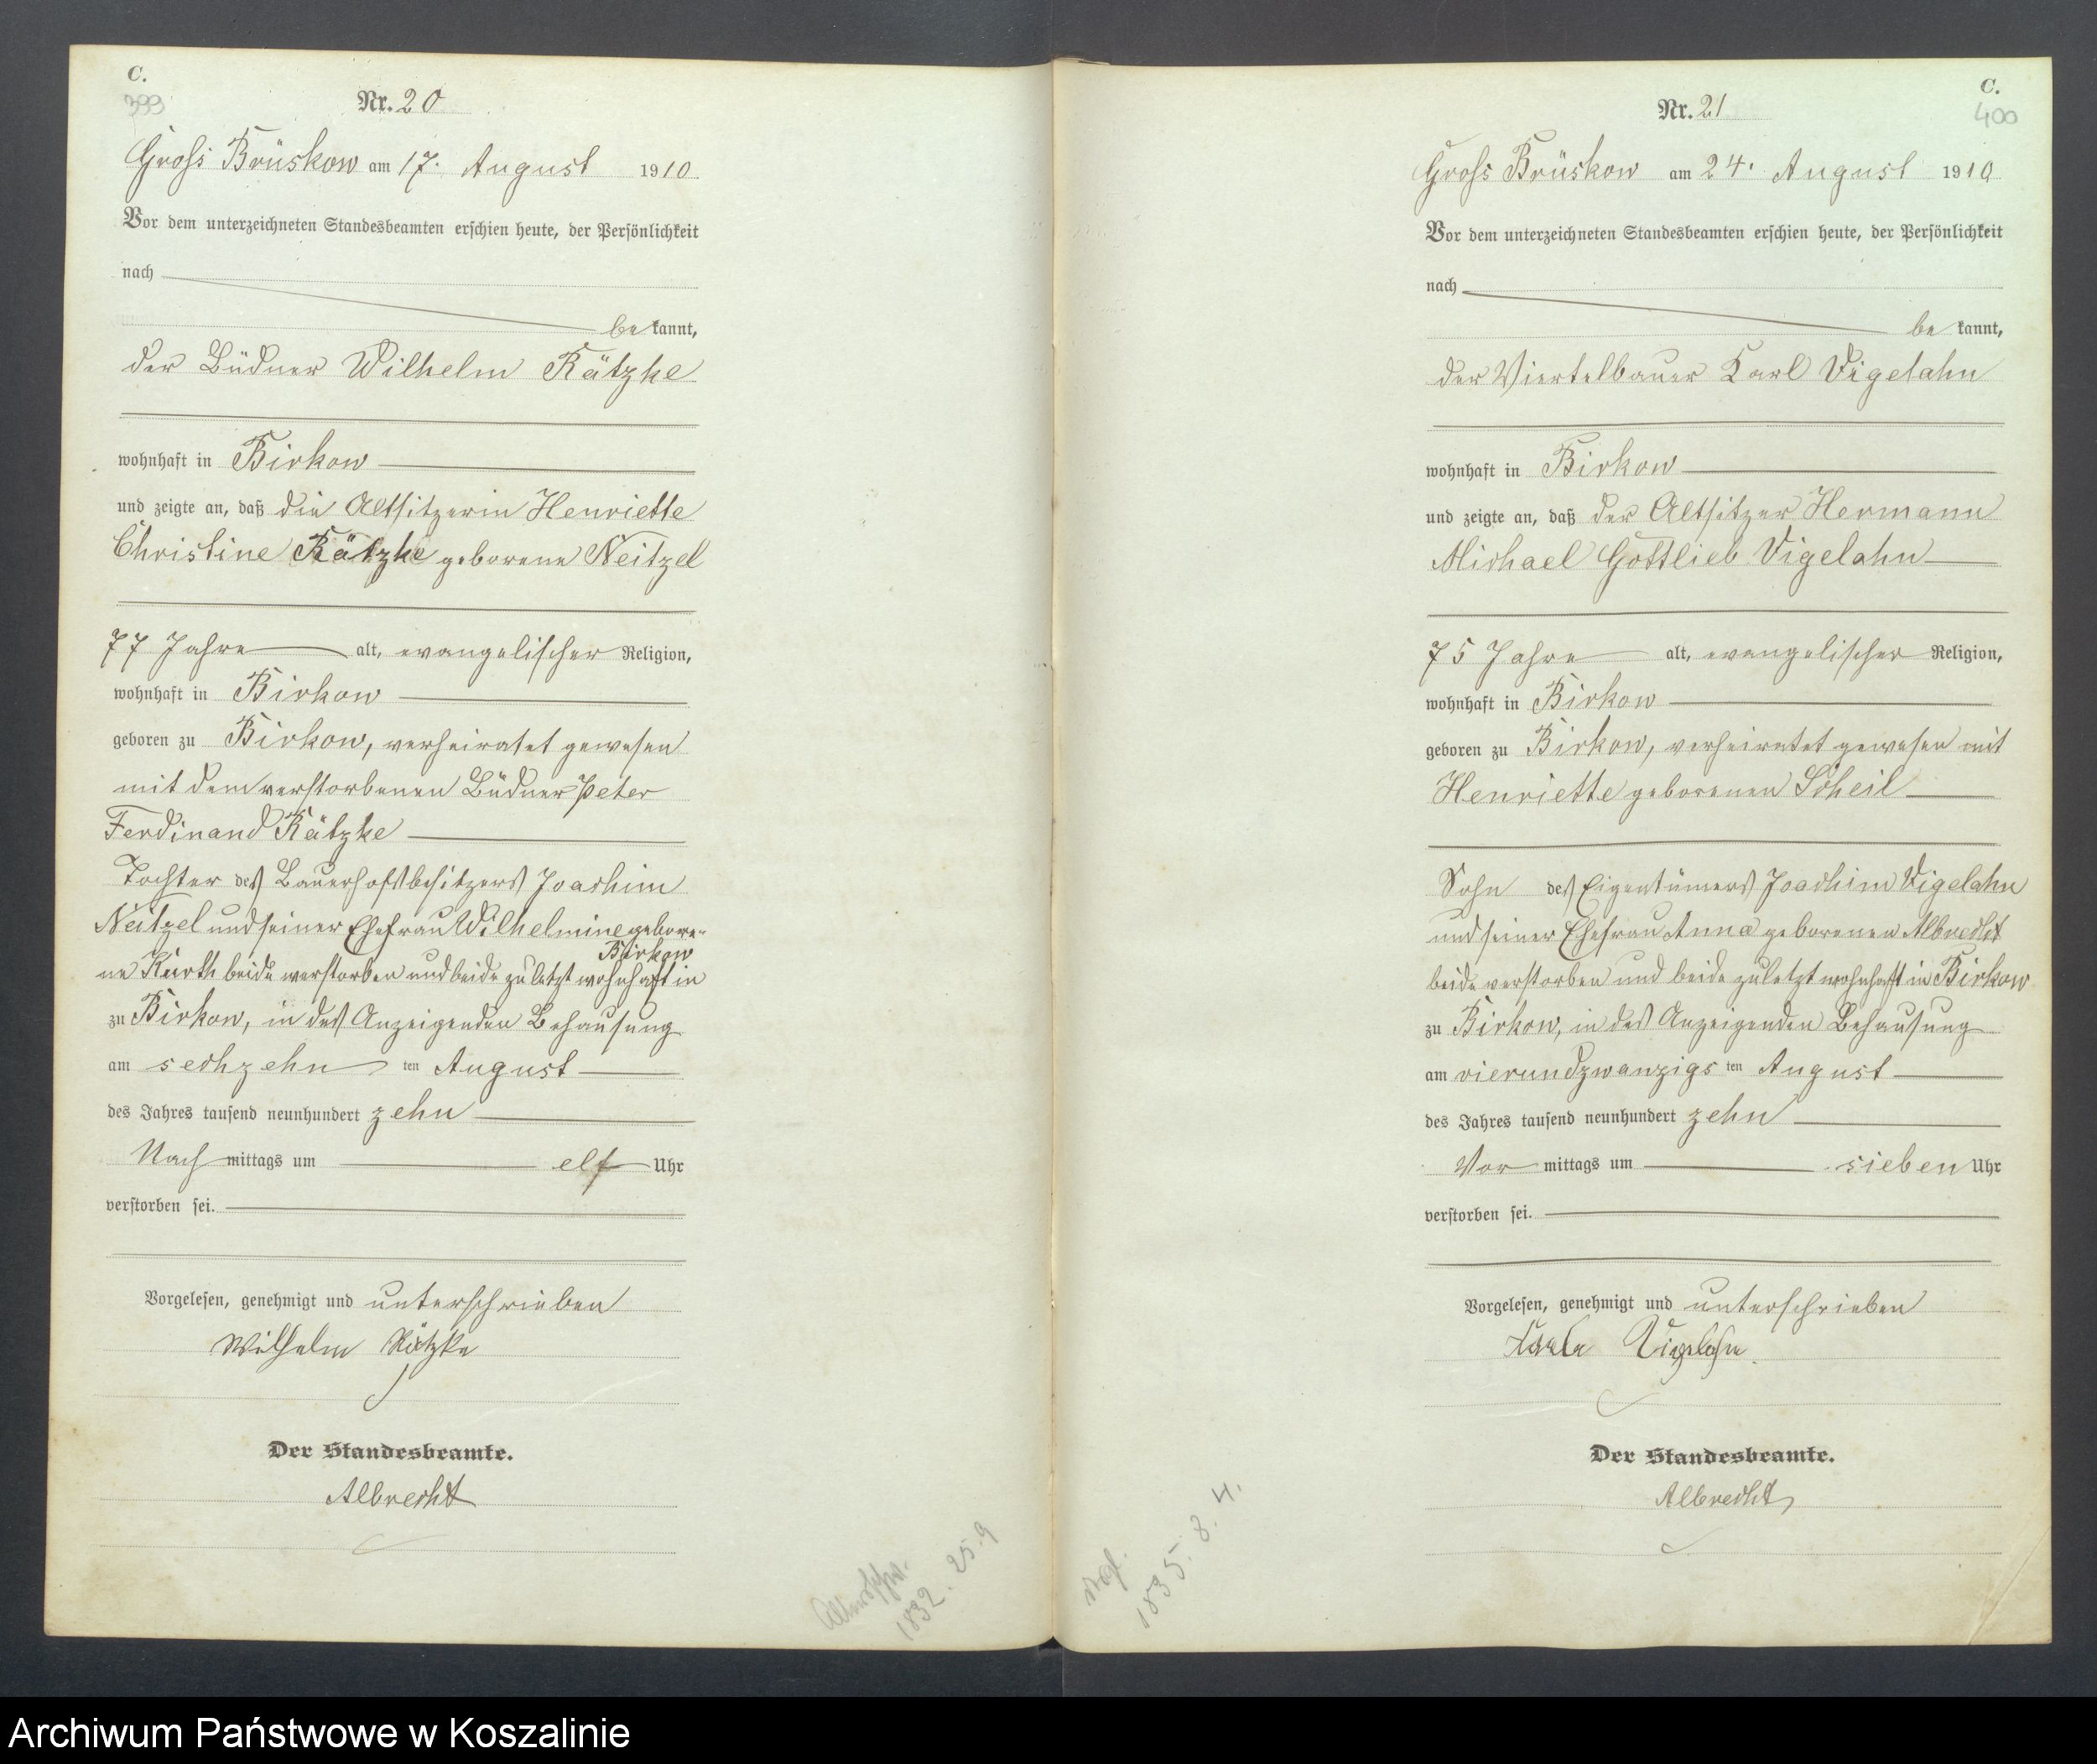 C.
399
Nr. 20
Gross Brüskow am 17. August 1910
Vor dem unterzeichneten Standesbeamten erschien heute, der Persönlichkeit
nach
be kannt,
der Büdner Wilhelm Rätzke
wohnhaft in Birkow
und zeigte an, daß die Altsitzerin Henriette
Christine Rätzke geborene Neitzel
77 Jahre alt, evangelischer Religion,
wohnhaft in Birkow
geboren zu Birkow, verheiratet gewesen
mit dem verstorbenen Büdner Peter
Ferdinand Rätzke
Tochter des Bauerhofsbesitzers Joachim
Neitzel und seiner Ehefrau Wilhelmine gebore-
Birkow
ne Kurth beide verstorben und beide zuletzt wohnhaft in
zu Birkow, in des Anzeigenden Behausung
am sechzehn ten August
des Jahres tausend neunhundert zehn
Nach mittags um elf Uhr
verstorben sei.
Vorgelesen, genehmigt und unterschrieben
Wilhelm Rätzke
Der Standesbeamte.
Albrecht
1832. 25.9
C.
400
Nr. 21
Gross Brüskow am 24. August 1910
Vor dem unterzeichneten Standesbeamten erschien heute, der Persönlichkeit
nach
be kannt,
der Viertelbauer Karl Vigelahn
wohnhaft in Birkow
und zeigte an, daß der Altsitzer Hermann
Michael Gottlieb Vigelahn
75 Jahre alt, evangelischer Religion,
wohnhaft in Birkow
geboren zu Birkow, verheiratet gewesen mit
Henriette geborenen Scheil
Sohn des Eigentümers Joachim Vigelahn
und seiner Ehefrau Anna geborenen Albrecht
beide verstorben und beide zuletzt wohnhaft in Birkow
zu Birkow, in des Anzeigenden Behausung
am vierundzwanzigs ten August
des Jahres tausend neunhundert zehn
Vor mittags um sieben Uhr
verstorben sei.
Vorgelesen, genehmigt und unterschrieben
Vigelahn
Der Standesbeamte.
Albrecht
1835. 8. 4.
Archiwum Państwowe w Koszalinie